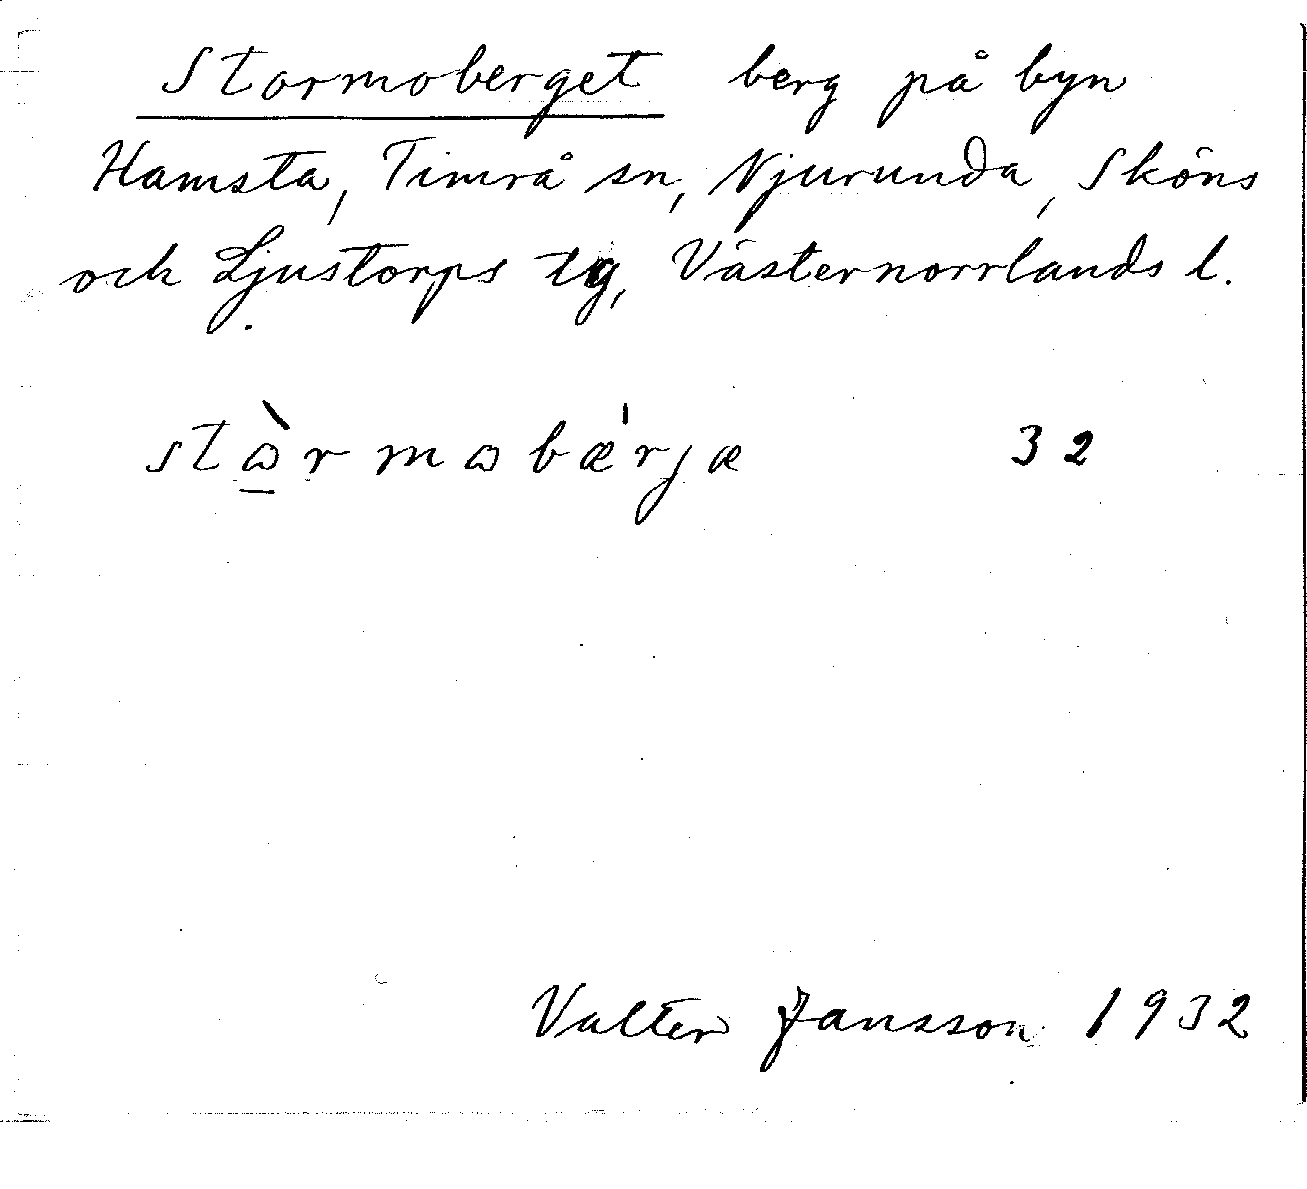 Stormoberget berg på byn
Hamsta, Timrå sn, Njurunda, Sköns
och Ljustorps tg, Västernorrlands l.
stɷ̀rmɷbǽrjæ 32
Valter Jansson 1932